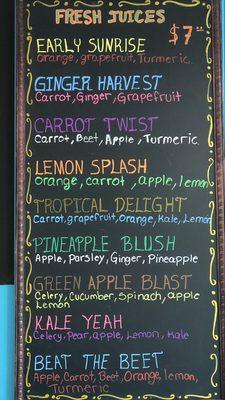 FRESH JUICES
$7
EARLY SUNRISE
Orange, grapefruit, Turmeric
GINGER HARVEST
Carrot, Ginger, Grapefruit
CARROT TWIST
Carrot, Beet, Apple, Turmeric
LEMON SPLASH
Orange, carrot, apple, lemon
TROPICAL DELIGHT
Carrot, grapefruit, Orange, Kale, Lemon
PINEAPPLE BLUSH
Apple, Parsley, Ginger, Pineapple
GREEN APPLE BLAST
Celery, Cucumber, Spinach, apple
Lemon
KALE YEAH
Celery, Pear, apple, Lemon, Kale
BEAT THE BEET
Apple, Carrot, Beet, Orange, lemon,
Turmeric